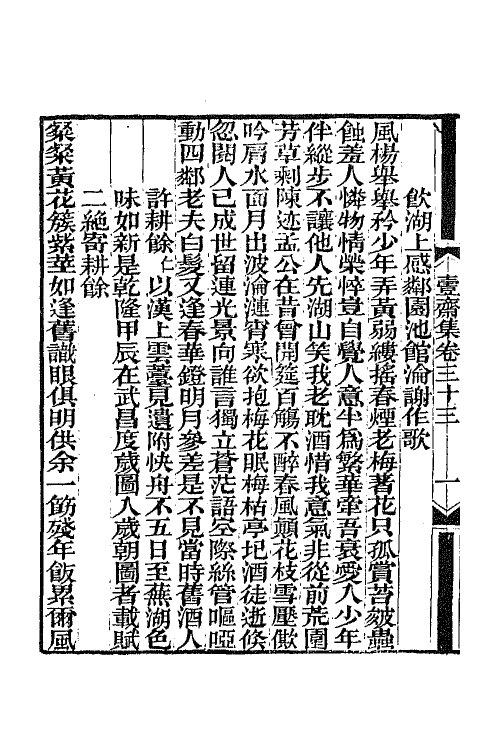 壹齋集卷三十三 一
飲湖上感鄰園池館淪謝作歌
風楊舉舉矜少年弄黃弱縷搖春煙老梅著花只孤賞苔皴蟲
蝕羞人憐物情榮悴豈自覺人意半爲繁華牽吾衰愛入少年
伴縱步不讓他人先湖山笑我老耽酒惜我意氣非從前荒園
芳草剩陳迹孟公在昔曾開筵百觴不醉春風顛花枝雪壓欹
吟肩水面月出波淪漣宵寒欲抱梅花眠梅枯亭圮酒徒逝倏
忽閱人已成世留連光景向誰言獨立蒼茫語空際絲管嘔啞
動四鄰老夫白髮又逢春華鐙明月參差是不見當時舊酒人
許耕餘仁以漢上雲薹見遺附快舟不五日至蕪湖色
味如新是乾隆甲辰在武昌度歲圖入歲朝圖者載賦
二絕寄耕餘
粲粲黃花簇紫莖如逢舊識眼俱明供余一筯殘年飯累爾風